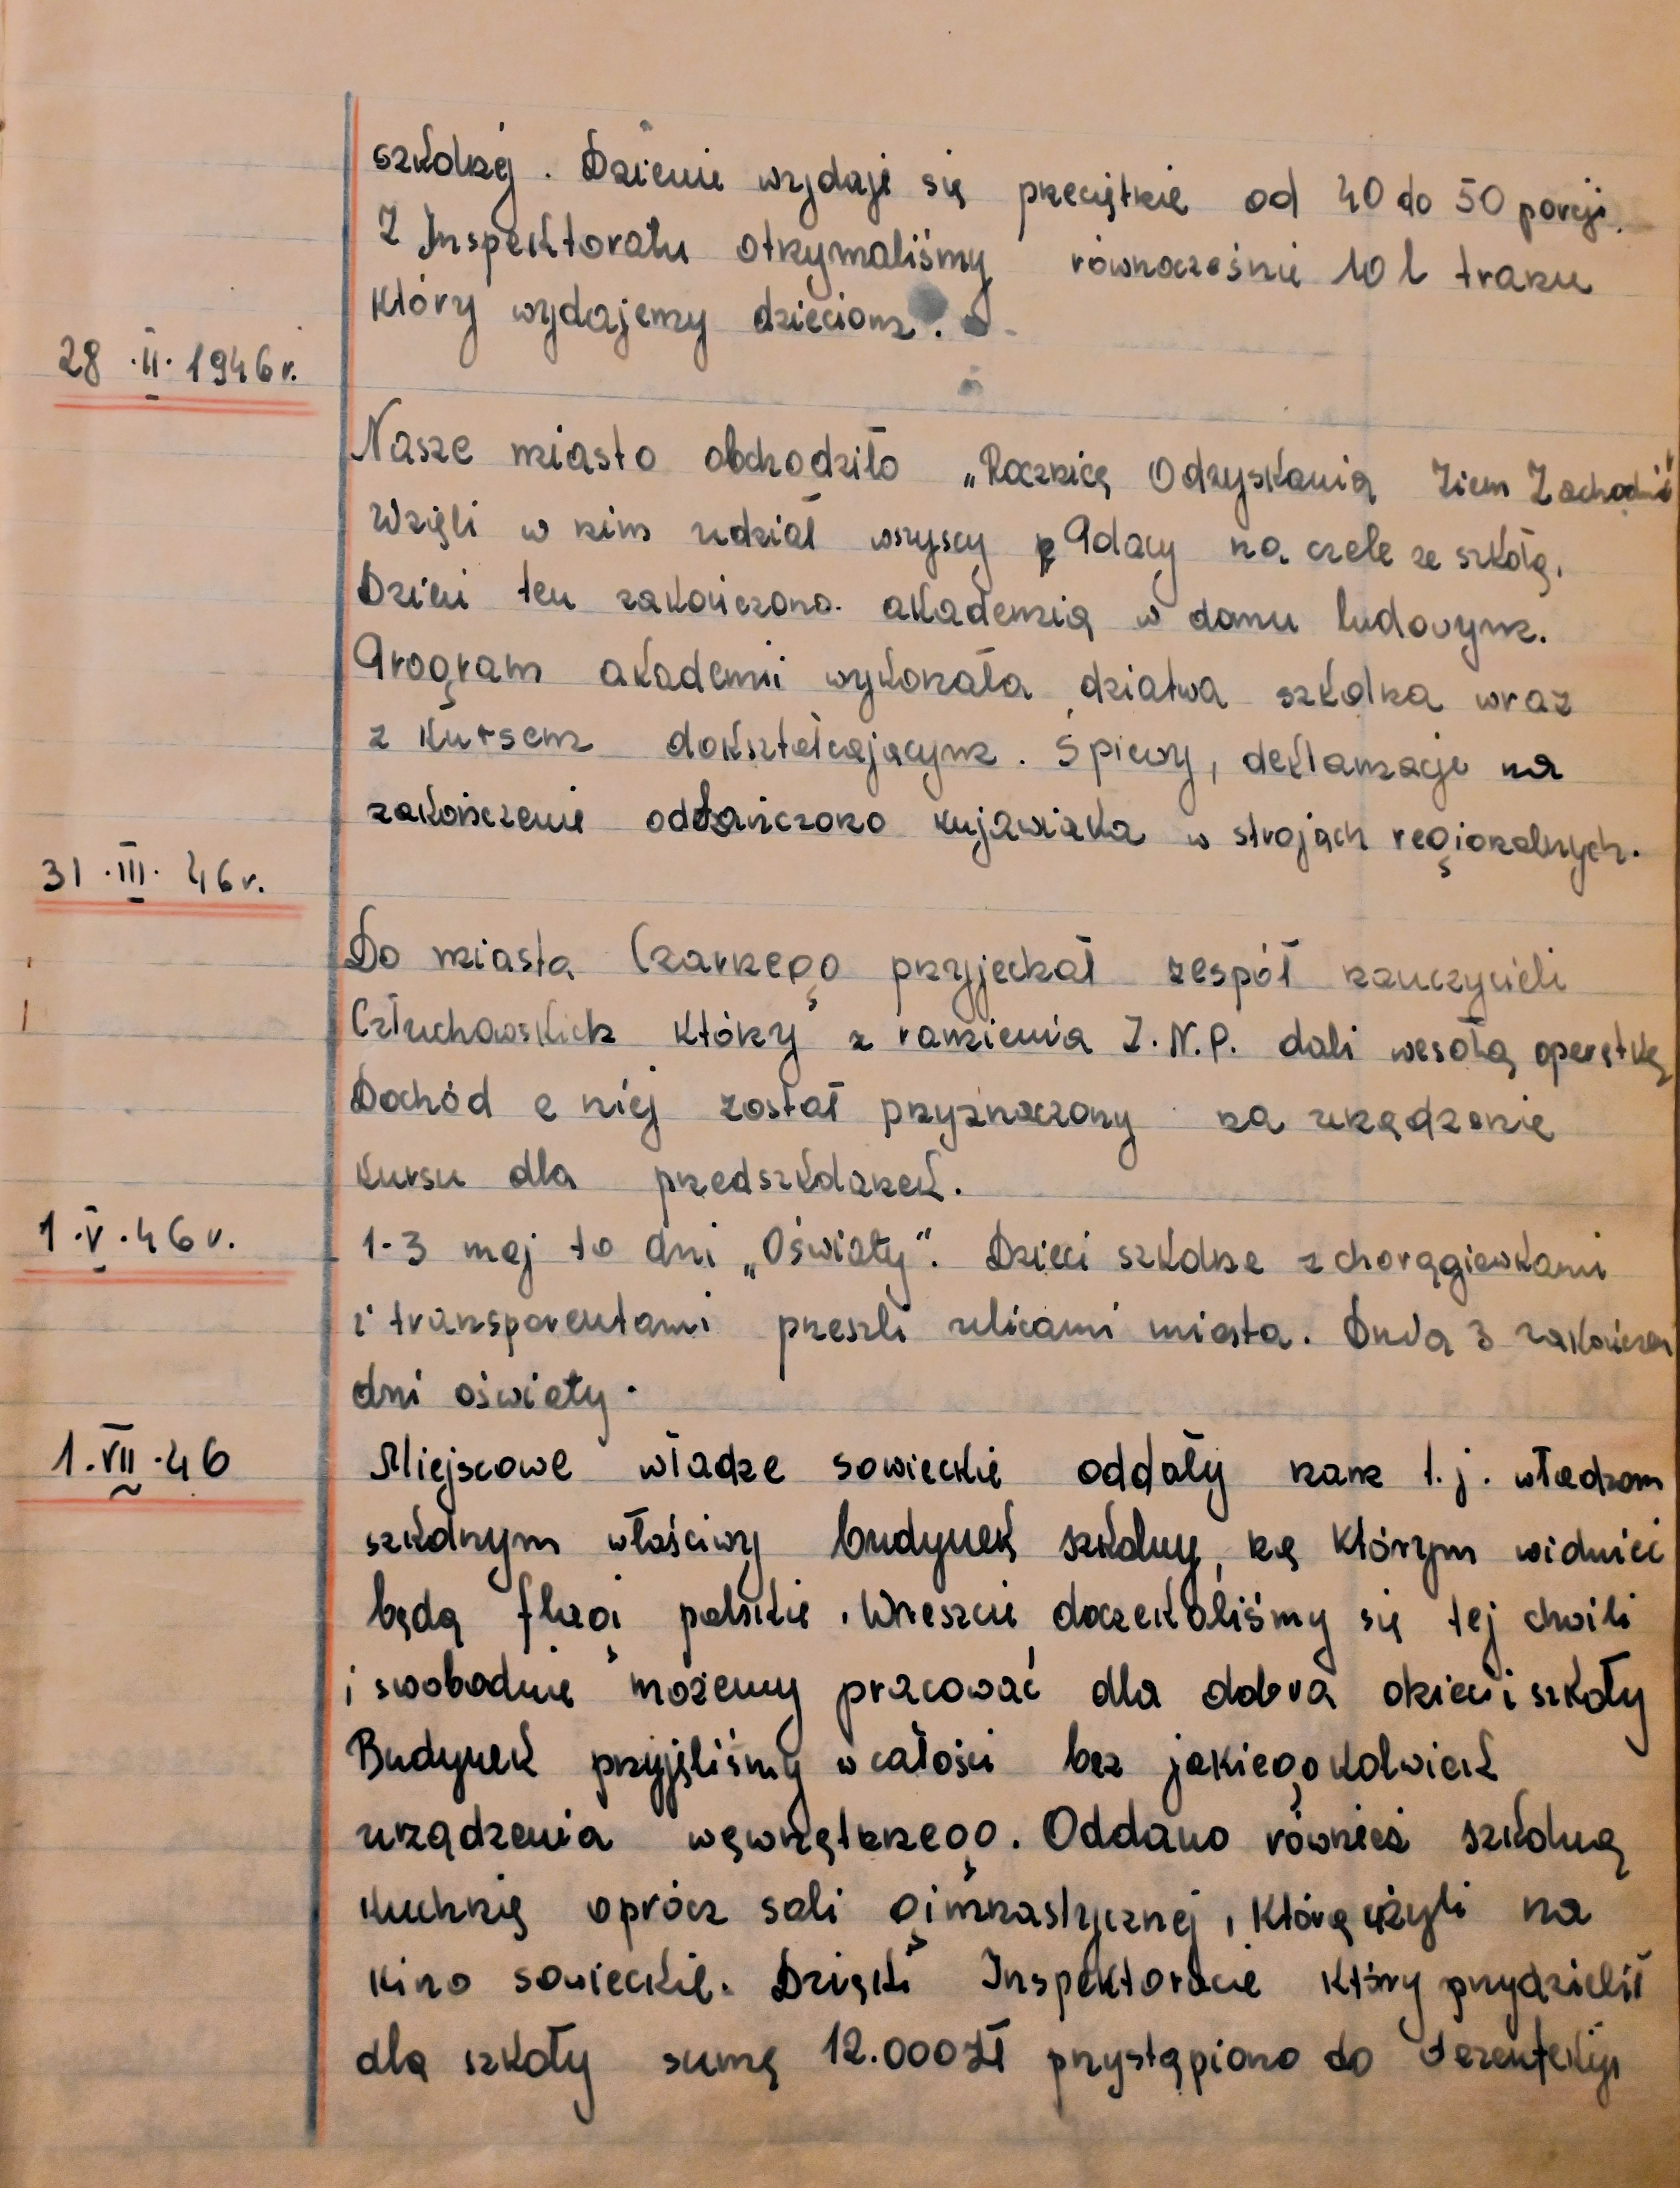 szkolnej. Dziennie wydaje się przeciętnie od 40 do 50 porcji.
Z Inspektoratu otrzymaliśmy równocześnie 10 l tranu
który wydajemy dzieciom.
28.II.1946r.
Nasze miasto obchodziło „Rocznicę Odzyskania Ziem Zachodni"
Wzięli w nim udział wszyscy Polacy na czele ze szkołą.
Dzień ten zakończono akademią w domu ludowym.
Program akademii wykonała dziatwa szkolna wraz
z kursem dokształcającym. Śpiewy, deklamacje na
zakończenie odtańczono kujawiaka w strojach regionalnych.
31.III.46r.
Do miasta Czarnego przyjechał zespół nauczycieli
Człuchowskich którzy z ramienia Z.N.P. dali wesołą operetkę
Dochód z niej został przyznaczony na urządzenie
kursu dla przedszkolanek.
1.V.46r.
1-3 maj to dni „Oświaty". Dzieci szkolne z chorągiewkami
i transparentami przeszli ulicami miasta. Dnia 3 zakończen
dni oświaty.
1.VII.46
Miejscowe władze sowieckie oddały nam t.j. władzom
szkolnym właściwy budynek szkolny, na którym widnieć
będą flagi polskie. Wreszcie doczekaliśmy się tej chwili
i swobodnie możemy pracować dla dobra dzieci i szkoły
Budynek przyjęliśmy w całości bez jakiegokolwiek
urządzenia wewnętrznego. Oddano również szkolną
kuchnię oprócz sali gimnastycznej, którą użyli na
kino sowieckie. Dzięki Inspektoracie który przydzielił
dla szkoły sumę 12.000 zł przystąpiono do dezenfekcji